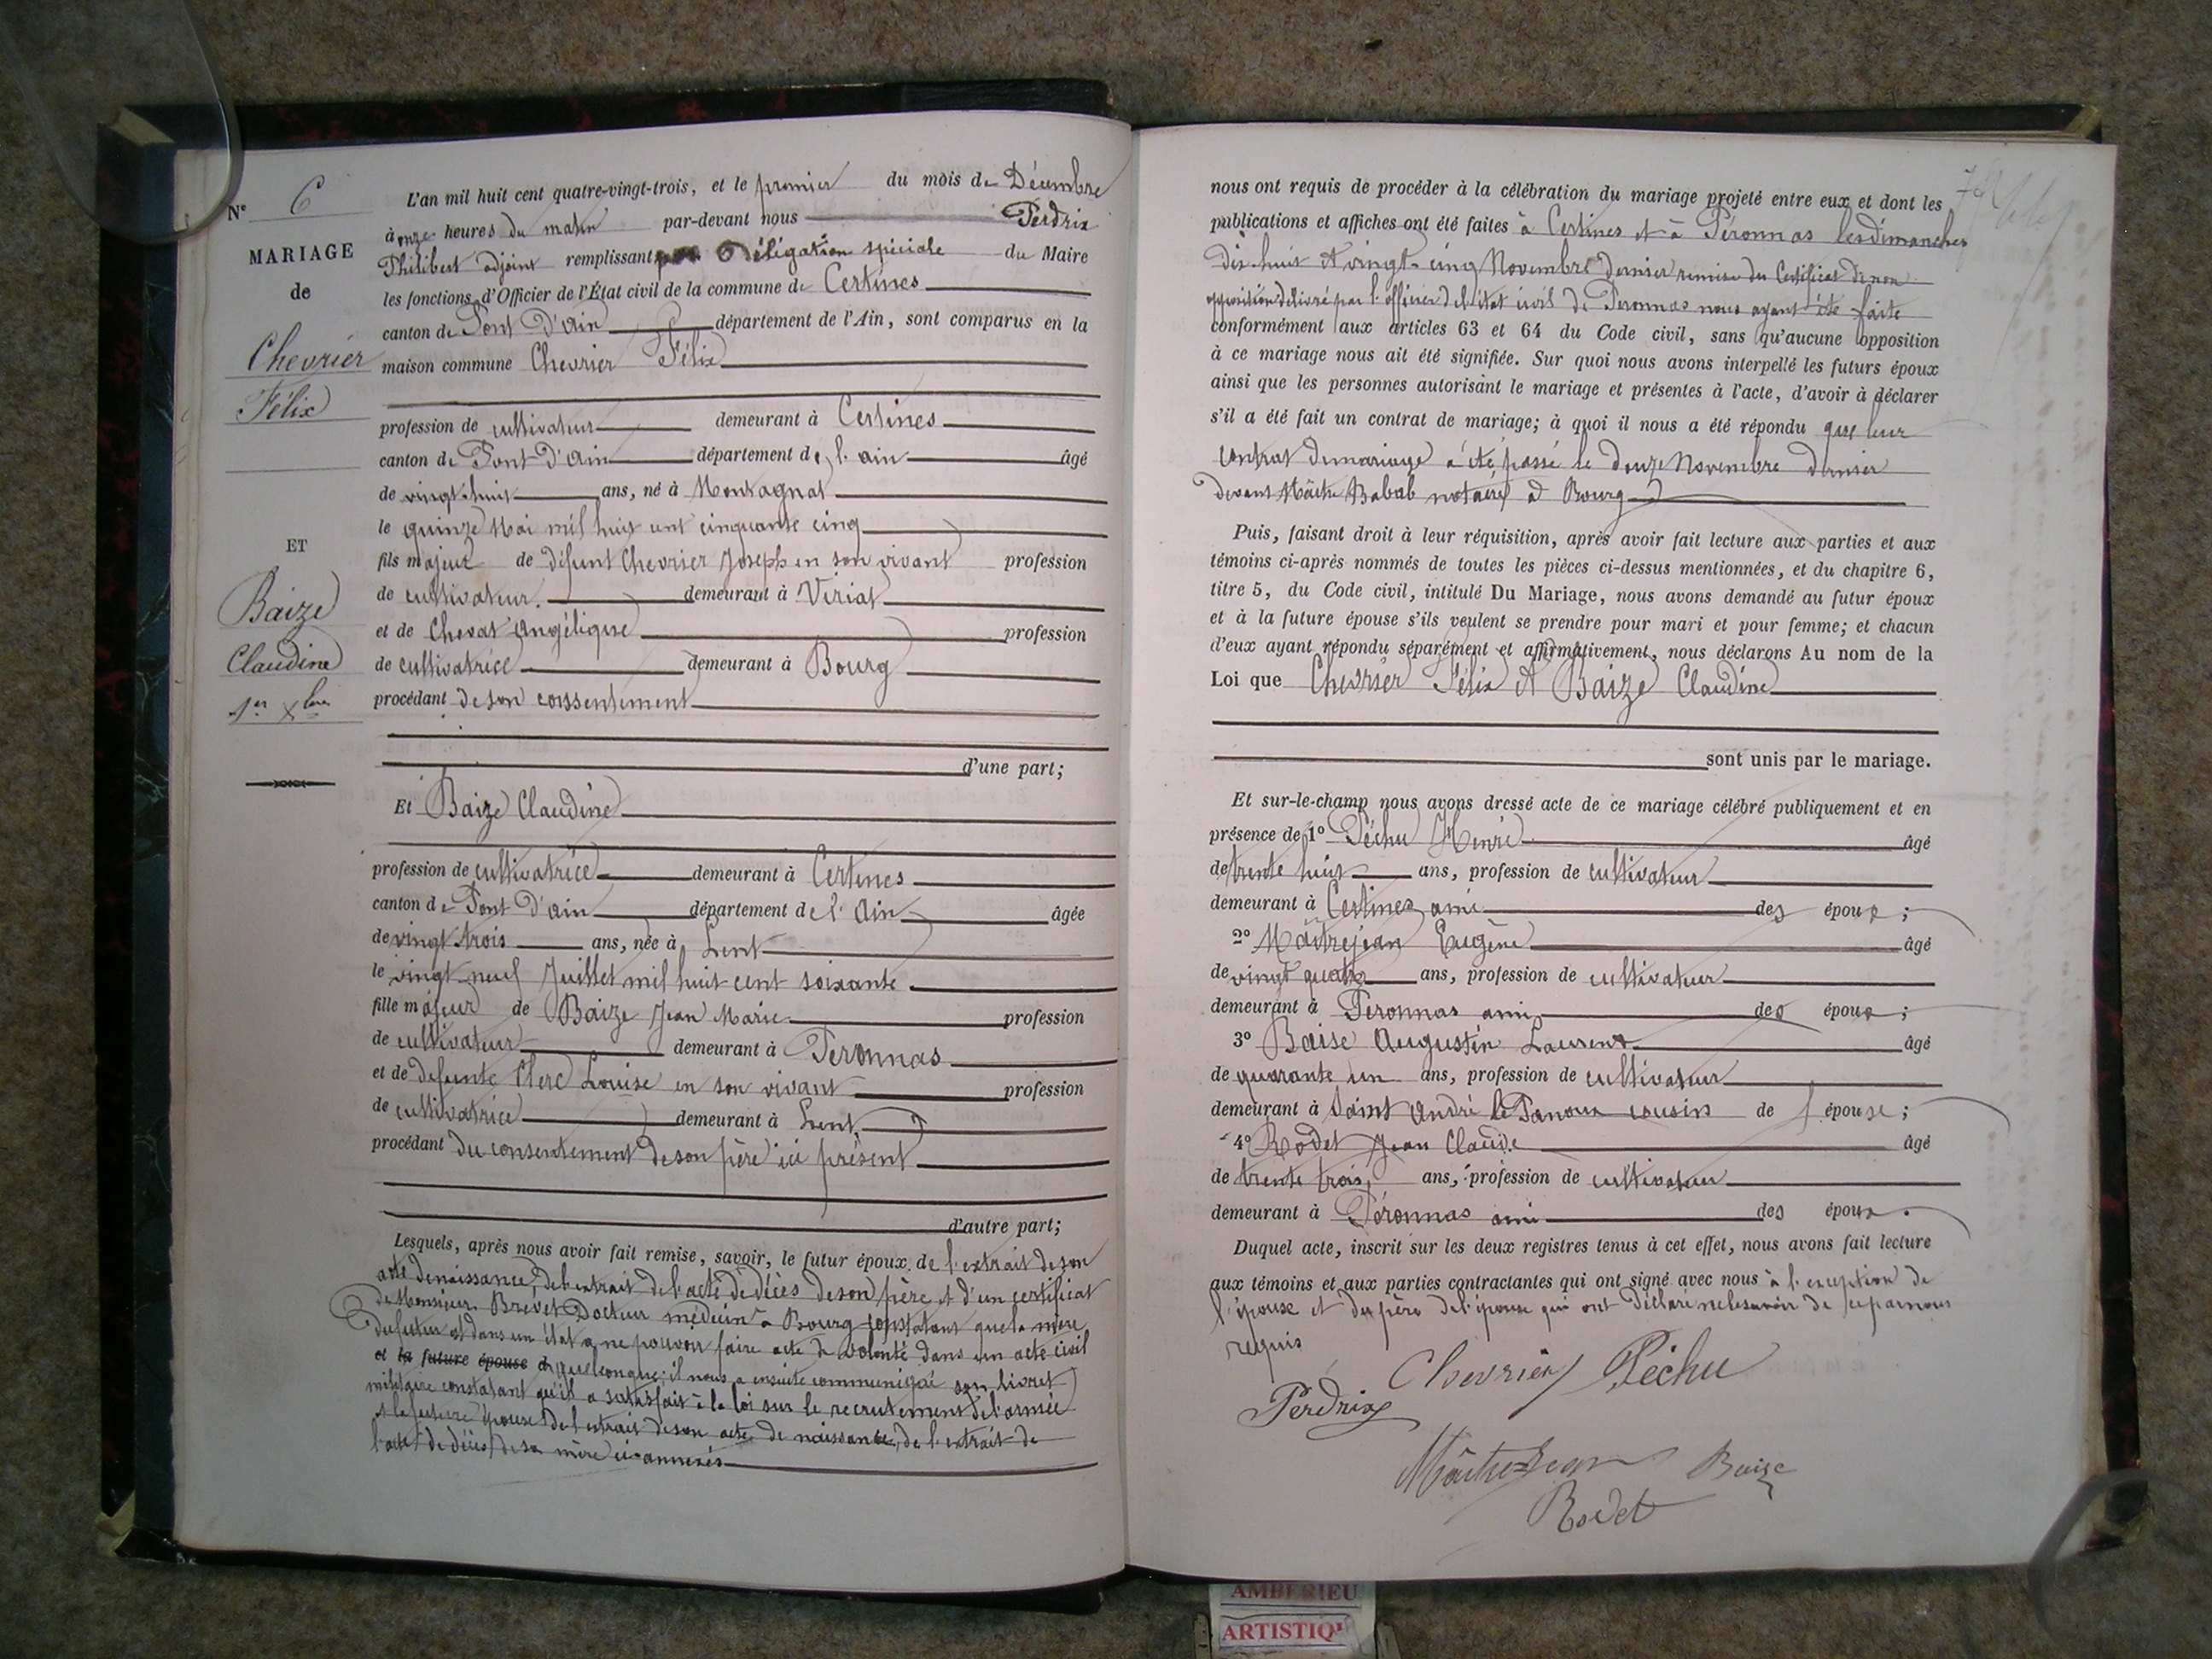 N° 6
MARIAGE
de
Chevrier
Félix
ET
Baize
Claudine
1er Xbre
L'an mil huit cent quatre-vingt-trois, et le premier du mois de Décembre
à onze heures du matin par-devant nous Perdrix
Philibert adjoint remplissant par Délégation spéciale du Maire
les fonctions d'Officier de l'État civil de la commune de Certines
canton de Pont D'Ain département de l'Ain, sont comparus en la
maison commune Chevrier Félix
profession de cultivateur demeurant à Certines
canton de Pont D'Ain département de l'ain âgé
de vingt-huit ans, né à Montagnat
le quinze Mai mil huit cent cinquante cinq
fils majeur de défunt Chevrier Joseph en son vivant profession
de cultivateur. demeurant à Viriat
et de Chovat Angélique profession
de cultivatrice demeurant à Bourg
procédant de son conssentement
d'une part;
Et Baize Claudine
profession de cultivatrice demeurant à Certines
canton de Pont D'ain département de l'Ain âgée
de vingt trois ans, née à Lent
le vingt-neuf Juillet mil huit cent soixante
fille majeur de Baize Jean Marie profession
de cultivateur demeurant à Peronnas
et de defunte Clerc Louise en son vivant profession
de cultivatrice demeurant à Lent
procédant du consentement de son père ici présent
d'autre part;
Lesquels, après nous avoir fait remise, savoir, le futur époux, de l'extrait de son
acte de naissance, de l'extrait de l'acte de décès de son père et d'un certificat
de Monsieur Brevet Docteur médecin à Bourg constatant que la mère
du futur est dans un état a ne pouvoir faire acte de volonté dans un acte civil
et la future épouse d quelconque; il nous a ensuite communiqué son livret
militaire constatant qu'il a satisfait à la loi sur le recrutement de l'armée
et la future épouse de l'extrait de son acte de naissance, de l'extrait de
l'acte de décès de sa mère ci-annexés
nous ont requis de procéder à la célébration du mariage projeté entre eux et dont les
publications et affiches ont été faites à Certines et à Péronnas les dimanches
Dix huit et vingt-cinq Novembre dernier remise du Certificat de non
opposition délivré par l'officier de l'état civil de Peronnas nous ayant été faite
conformément aux articles 63 et 64 du Code civil, sans qu'aucune opposition
à ce mariage nous ait été signifiée. Sur quoi nous avons interpellé les futurs époux
ainsi que les personnes autorisant le mariage et présentes à l'acte, d'avoir à déclarer
s'il a été fait un contrat de mariage; à quoi il nous a été répondu que leur
contrat de mariage a été passé le douze Novembre dernier
devant Maître notaire à Bourg
Puis, faisant droit à leur réquisition, après avoir fait lecture aux parties et aux
témoins ci-après nommés de toutes les pièces ci-dessus mentionnées, et du chapitre 6,
titre 5, du Code civil, intitulé Du Mariage, nous avons demandé au futur époux
et à la future épouse s'ils veulent se prendre pour mari et pour femme; et chacun
d'eux ayant répondu séparément et affirmativement, nous déclarons Au nom de la
Loi que Chevrier Félix et Baize Claudine
sont unis par le mariage.
Et sur-le-champ nous avons dressé acte de ce mariage célébré publiquement et en
présence de 1° Péchu Henri âgé
de trente huit ans, profession de cultivateur
demeurant à Certines ami des époux;
2° Maîtrejean Eugène âgé
de vingt quatre ans, profession de cultivateur
demeurant à Peronnas ami des époux;
3° Baise Augustin Laurent âgé
de quarante un ans, profession de cultivateur
demeurant à Saint André le Panoux cousin de l'épouse;
4° Rodet Jean Claude âgé
de trente trois ans, profession de cultivateur
demeurant à Péronnas ami des époux.
Duquel acte, inscrit sur les deux registres tenus à cet effet, nous avons fait lecture
aux témoins et aux parties contractantes qui ont signé avec nous à l'exception de
l'épouse et du père de l'épouse qui ont déclaré ne le savoir de ce par nous
requis
Chevrier Péchu
Perdrix
Maitrejean Baise
Rodet
AMBERIEU
ARTISTIQ